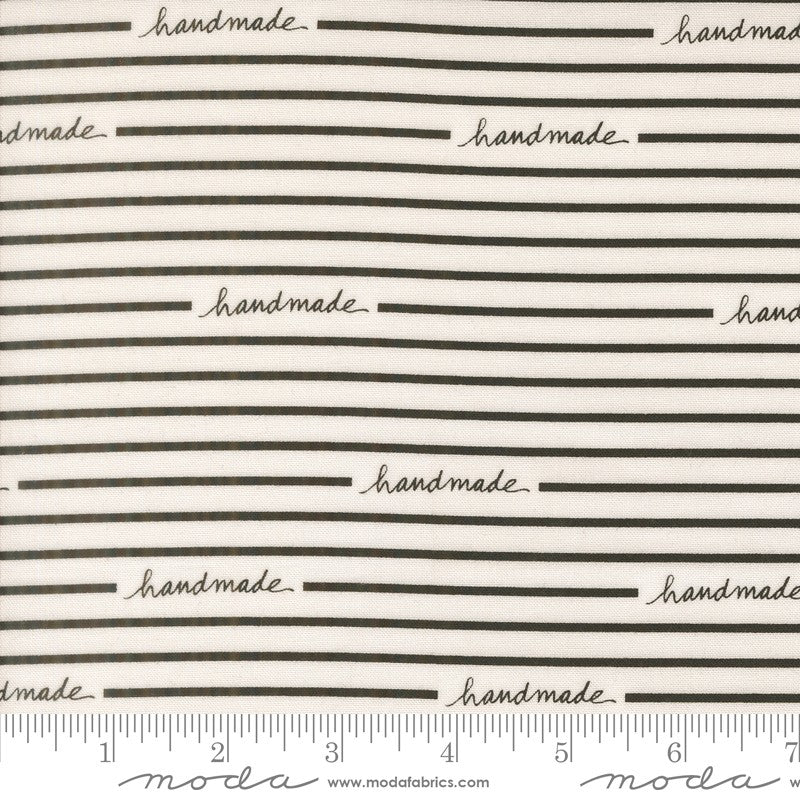 handmade handmad
dmade handmade
handmade hand
handmade
handmade handmade
dmade handmade
1 2 3 4 5 6 7
moda www.modafabrics.com moda w